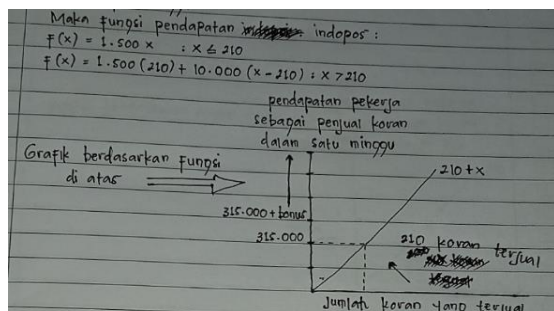 Maka fungsi pendapatan indopos :
f(x) = 1.500 x ; x ≤ 210
f(x) = 1.500 (210) + 10.000 (x - 210) ; x > 210
pendapatan pekerja
sebagai penjual koran
dalam satu minggu
Grafik berdasarkan fungsi
di atas
210 + x
315.000 + bonus
315.000
210 koran terjual
Jumlah koran yang terjual